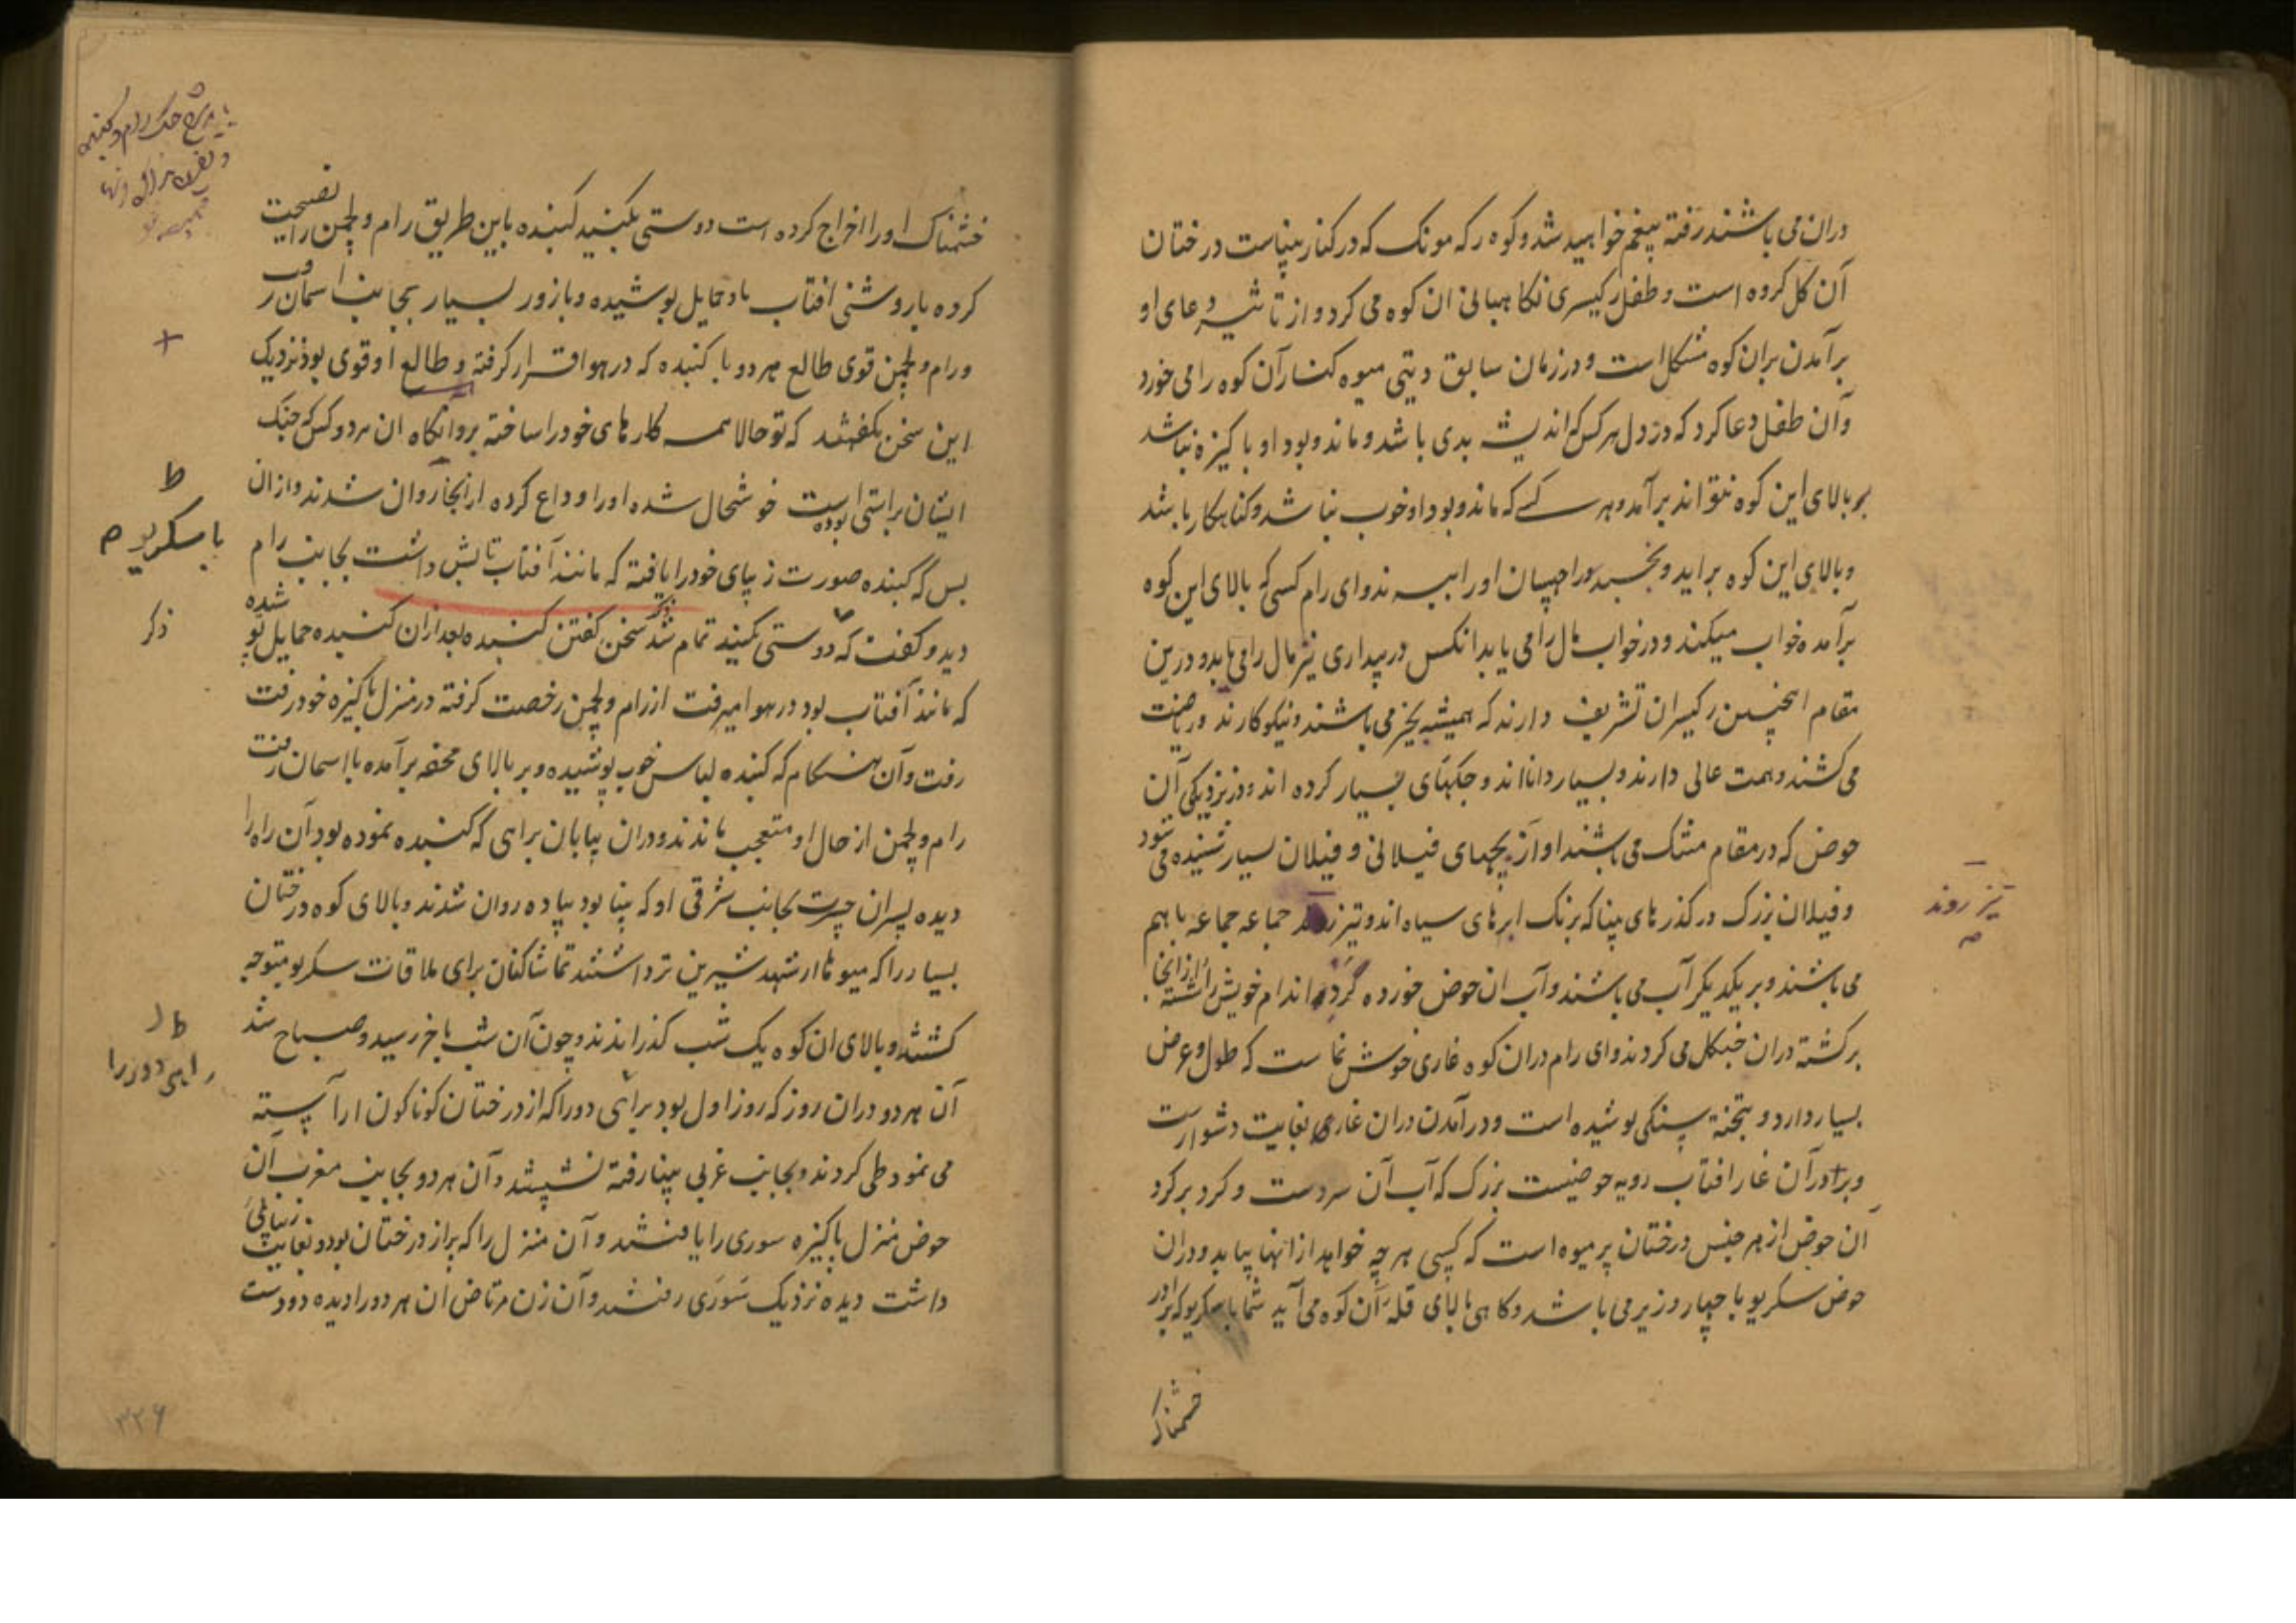 دران می باشند رفته بیغم خواهید شد و کوه رکه مونک که در کنار پنپاست درختان
آن کل کرده است و طفل رکیسری نکاهبانی ان کوه می کرد و از تاثیر دعای او
برآمدن بران کوه مشکل است و در زمان سابق دیتی میوه کنار آن کوه را می خورد
و آن طفل دعا کرد که در دل هر کس که اندیشه بدی باشد و ماند و بود او پاکیزه نباشد
بر بالای این کوه نتواند برآمد و هر کسے که ماند و بود او خوب نباشد و کناهکار باشد
و بالای این کوه براید و بخسپد و راچهسان او را ببرند و ای رام کسی که بالای این کوه
برآمده خواب میکند و در خواب مال را می یابد انکس در بیداری نیز مال را می یابد و درین
مقام انچنین رکیسران تشریف دارند که همیشه بخیر می باشند و نیکو کارند و ریاضت
می کشند و همت عالی دارند و بسیار دانا اند و جکهای بسیار کرده اند و در نزدیکی آن
حوض که در مقام متنک می باشند اواز بچهای فیلانی و فیلان بسیار شنیده می شود
و فیلان بزرک در کذرهای پنپا که برنک ابرهای سیاه اند و تیز روند جماعه جماعه باهم
می باشند و بر یکدیکر آب می پاشند و آب ان حوض خورده کرد اندام خویش را شسته از انجا
برکشته دران جنکل می کردند و ای رام دران کوه غاری خوش نما ست که طول و عرض
بسیار دارد و بتخته سنکی پوشیده است و در آمدن دران غار بغایت دشوارست
و بر در آن غار افتاب رویه حوضیست بزرک که آب آن سردست و کرد بر کرد
آن حوض از هر جنس درختان پر میوه است که کسی هر چه خواهد از انها بیابد و دران
حوض سکریو با چهار وزیر می باشد و کاهی بالای قله آن کوه می آید شما با سکریو که برادر
خشمناک
تیز روند
خشمناک او را اخراج کرده است دوستی بکنید کبنده باین طریق رام و لچمن را نصیحت
کرده با روشنی افتاب با و حمایل پوشیده و با زور بسیار بجانب اسمان رفت
و رام و لچمن قوی طالع هر دو با کبنده که در هوا قرار کرفته و طالع او قوی بود نزدیک
این سخن بکفتند که تو حالا همه کارهای خود را ساخته برو انکاه ان هر دو کس که جنک
ایشان براستی بوده است خوشحال شده او را وداع کرده از انجا روان شدند و از ان
پس که کبنده صورت زیبای خود را یافته که مانند آفتاب تابش داشت بجانب رام
دید و کفت که دوستی بکنید تمام شد ذکر سخن کفتن کبنده بعد ازان کبنده حمایل پوشیده
که مانند آفتاب بود در هوا میرفت از رام و لچمن رخصت کرفته در منزل پاکیزه خود رفت
رفت و آن هنکام که کبنده لباس خوب پوشیده و بر بالای محفه برآمده با اسمان رفت
رام و لچمن از حال او متعجب ماندند و دران بیابان براهی که کبنده نموده بود آن راه را
دیده پسران جسرت بجانب شرقی او که پنپا بود پیاده روان شدند و بالای کوه درختان
بسیار را که میوها از شهد شیرین تر داشتند تماشا کنان برای ملاقات سکریو متوجه
کشتند و بالای ان کوه یک شب کذراندند و چون آن شب باخر رسید و صباح شد
آن هر دو دران روز که روز اول بود براهی دور را که از درختان کوناکون اراسته
می نمود طی کردند و بجانب غربی پنپا رفته نشستند و آن هر دو بجانب مغرب آن
حوض منزل پاکیزه سوری را یافتند و آن منزل را که پر از درختان بود و بغایت زیبائی
داشت دیده نزدیک سوری رفتند و آن زن مرتاض ان هر دو را دیده دو دست
با سکریو
ذکر
راهی دور را
۳۲۶